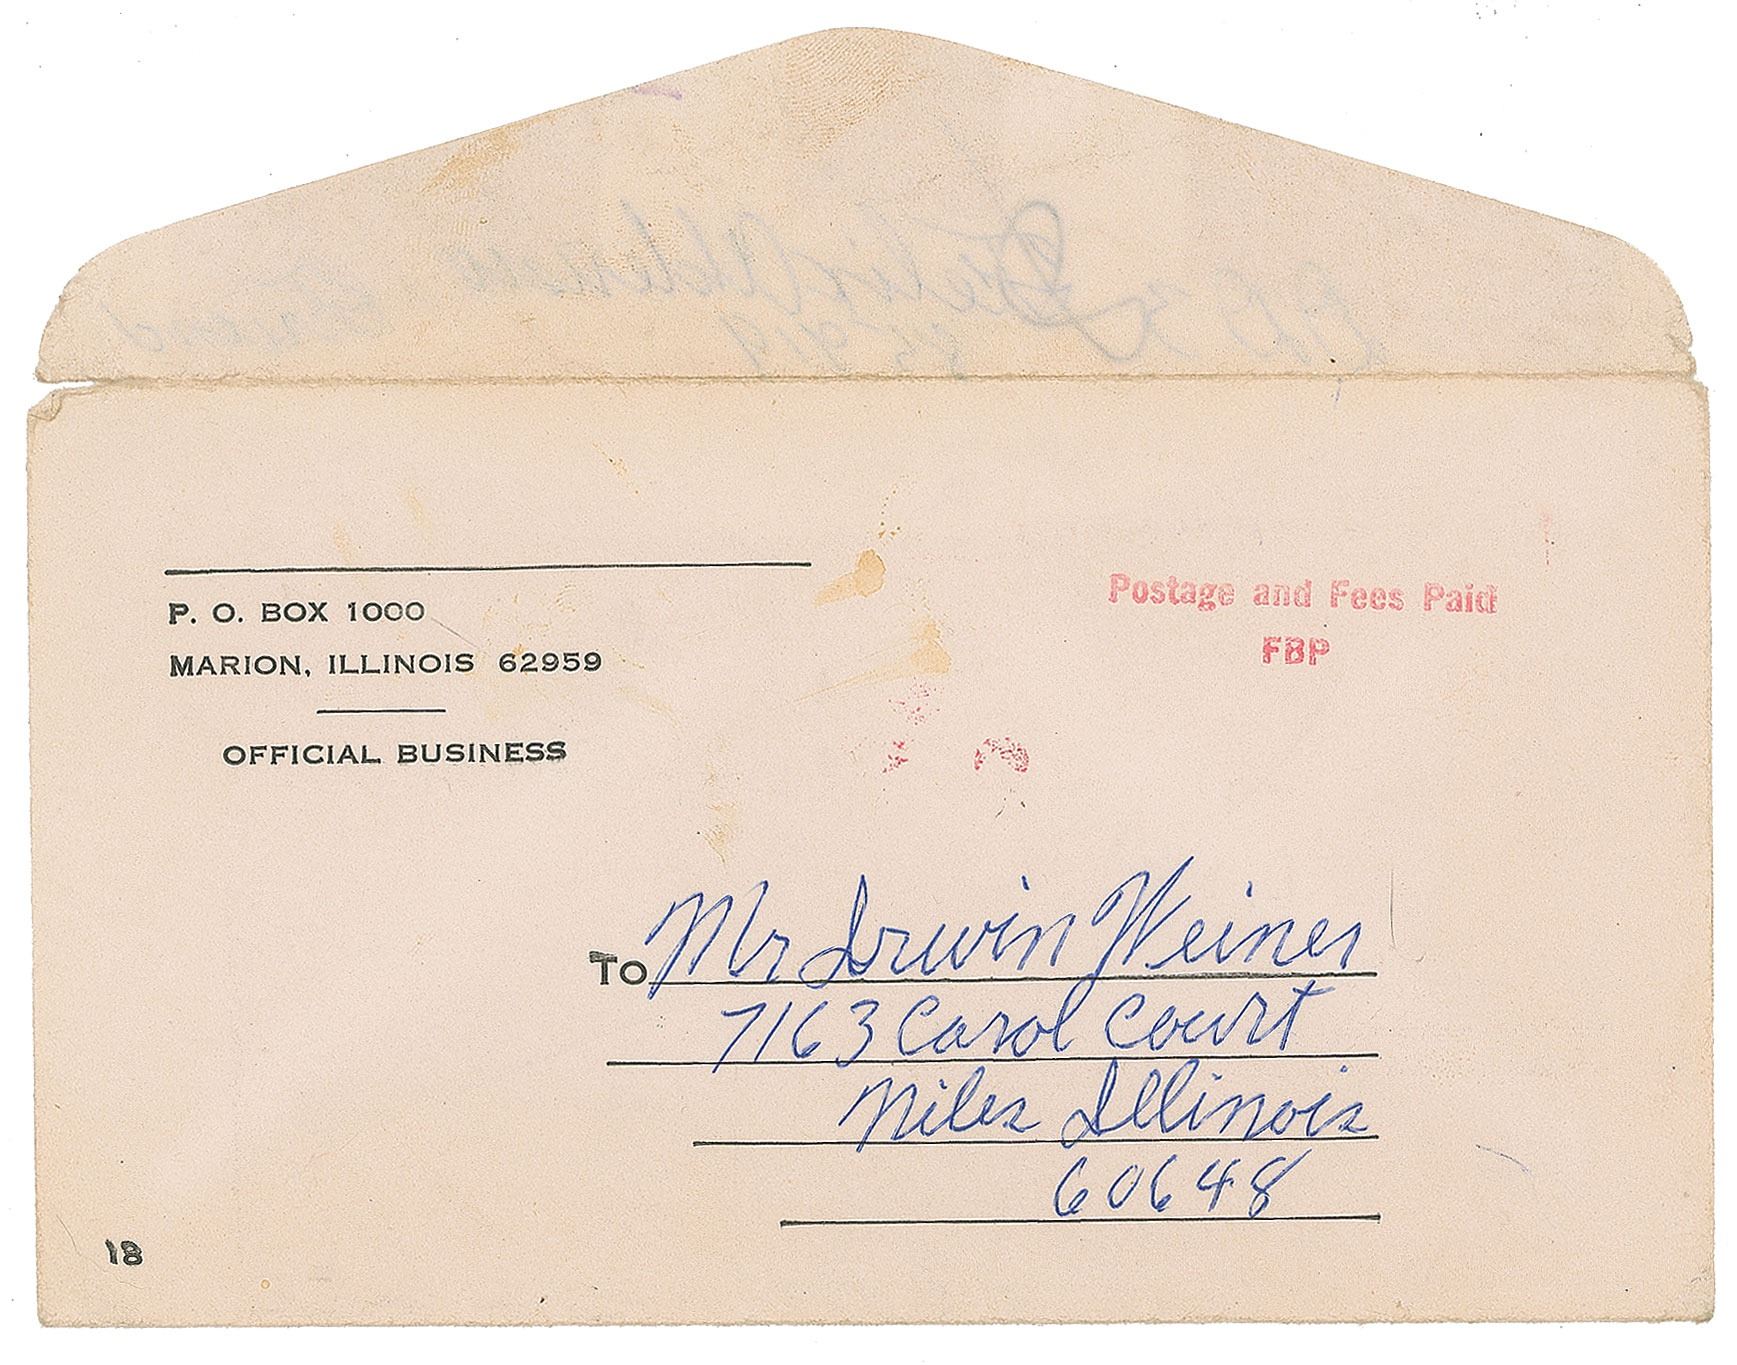 P. O. BOX 1000
MARION, ILLINOIS 62959
OFFICIAL BUSINESS
Postage and Fees Paid
FBP
TO Mr Irwin Weiner
7163 Carol Court
Niles Illinois
60648
18